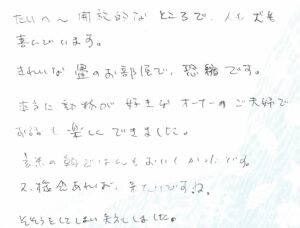 たいへん開放的なところで、人も犬も
喜んでいます。
きれいな畳のお部屋で、恐縮です。
本当に動物が好きなオーナーのご夫婦で
お話も楽しくできました。
の朝ごはんもおいしかったです。
又、機会あれば、来たいですね。
そそうをしてしまい失礼しました。